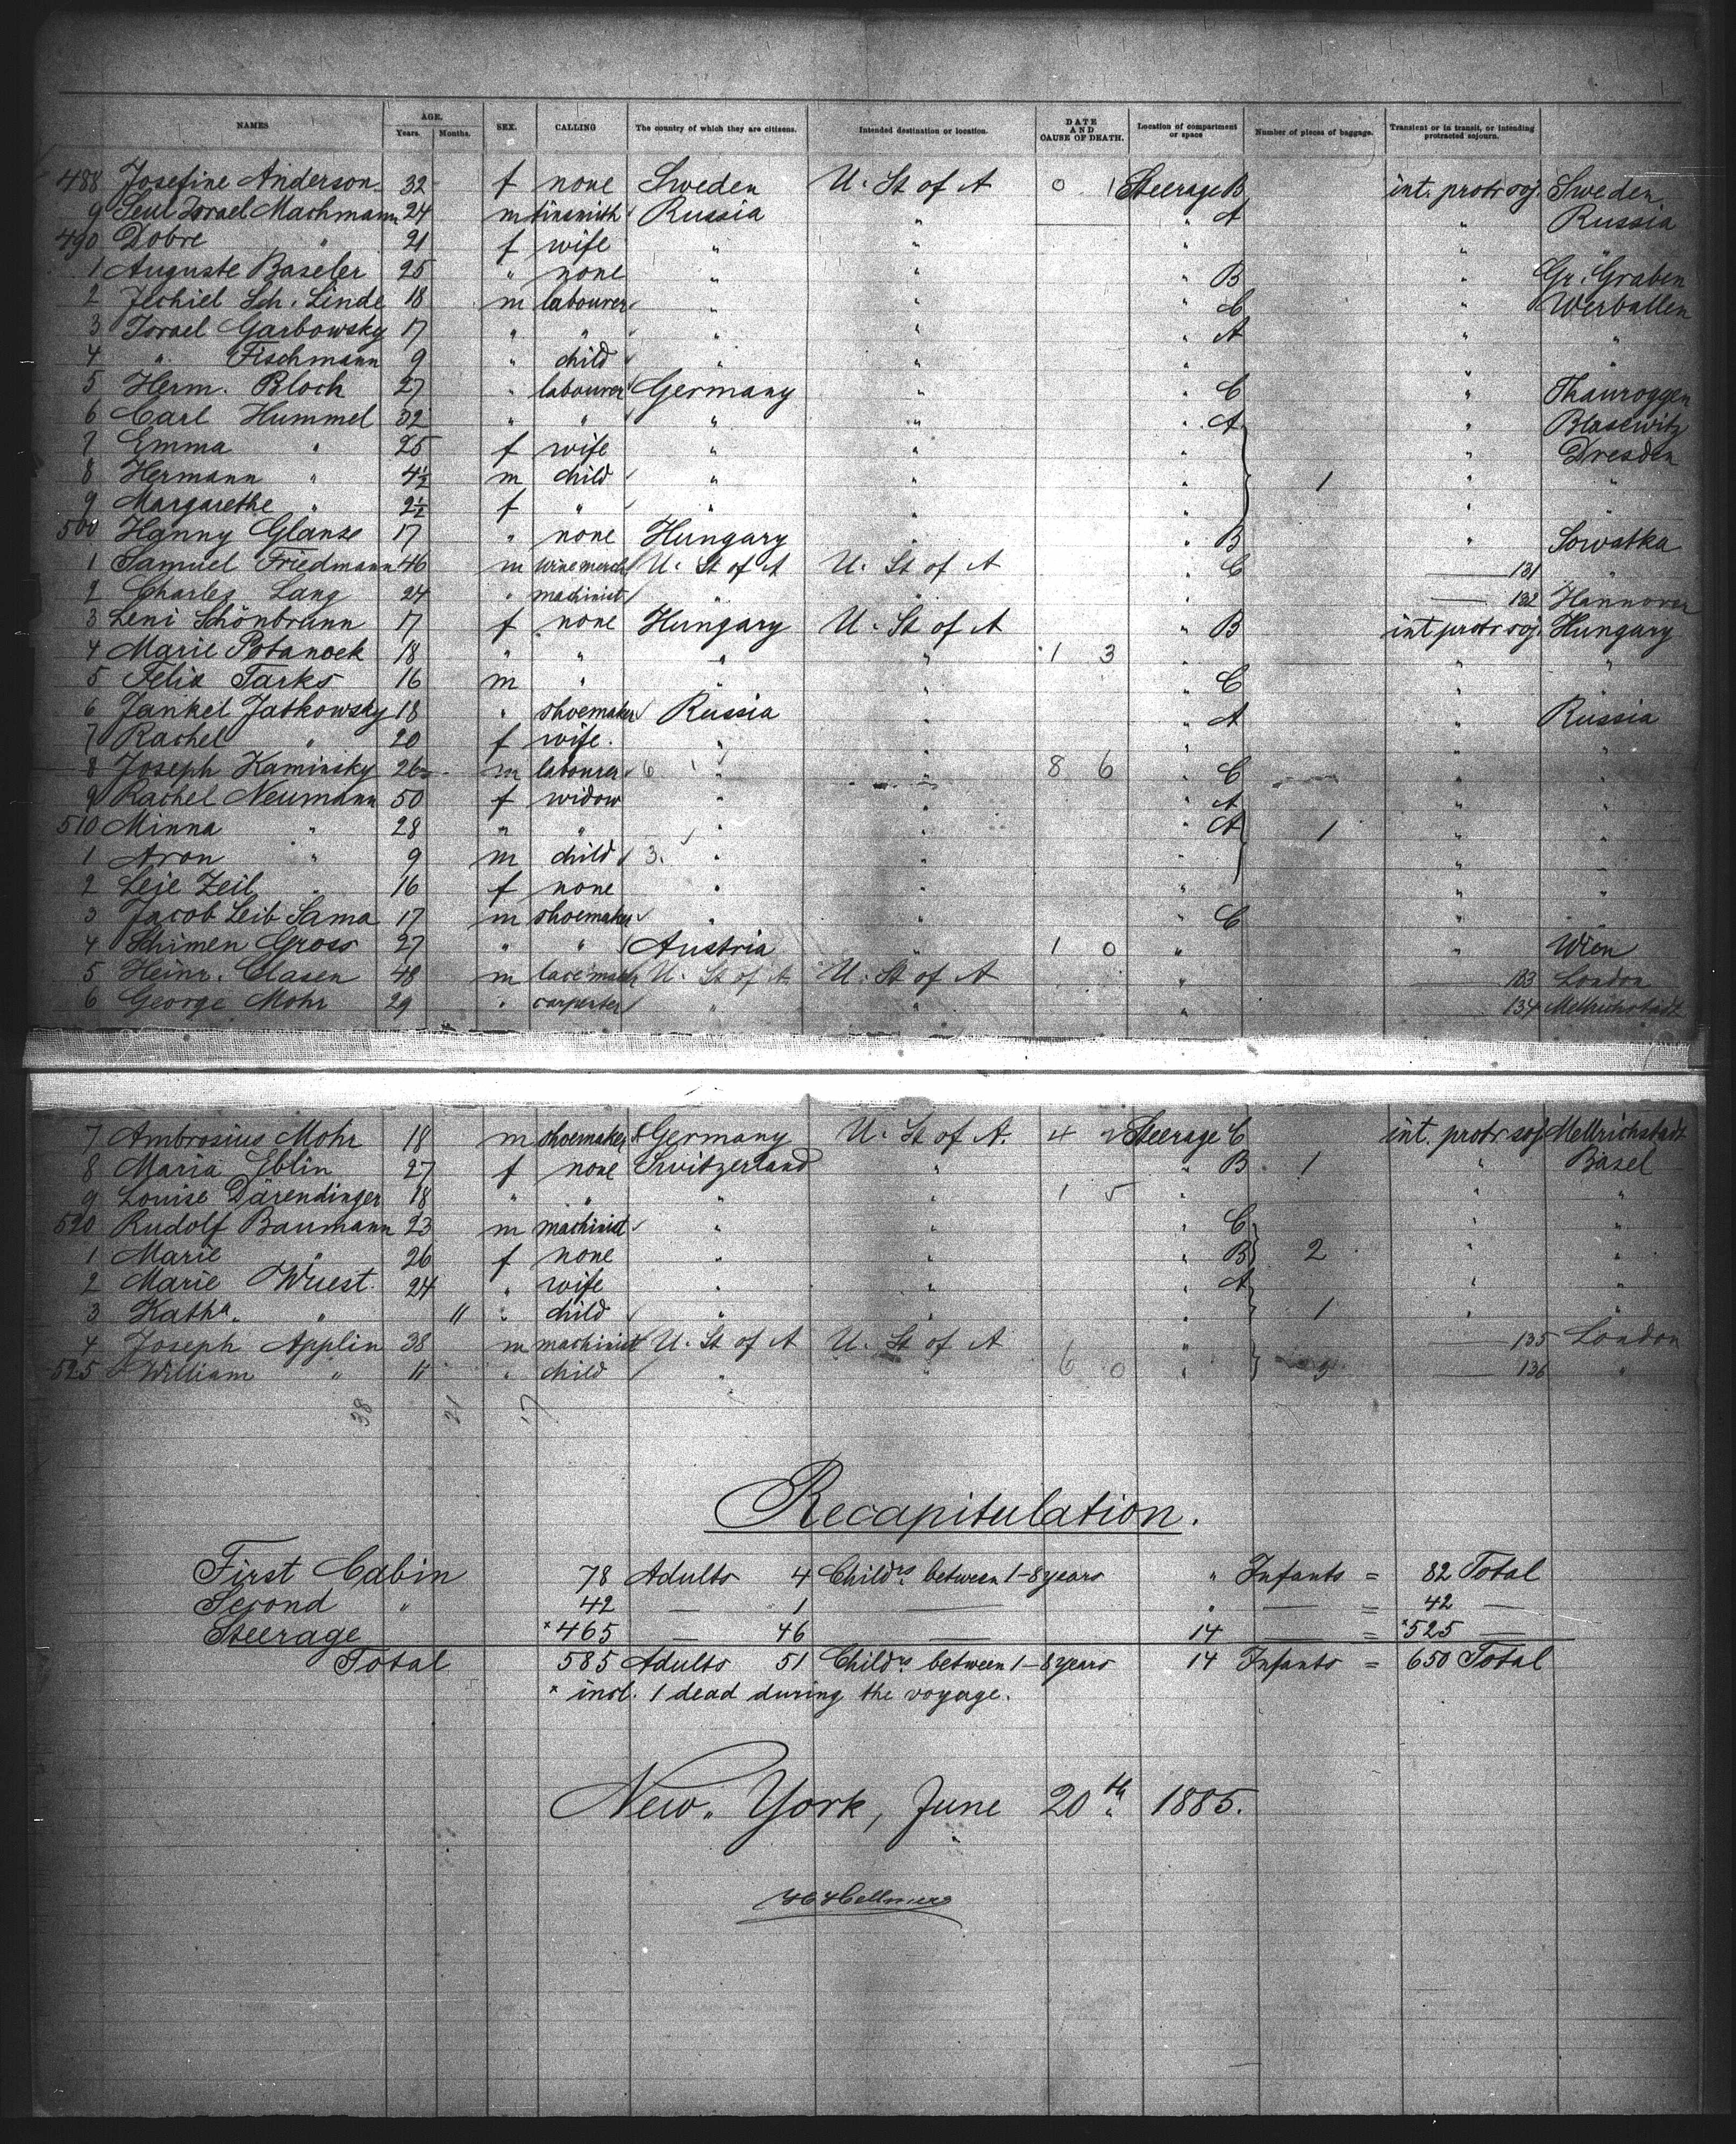 NAMES AGE. Years. Months. SEX. CALLING The country of which they are citizens. Intended destination or location. DATE AND CAUSE OF DEATH. Location of compartment or space Number of pieces of baggage. Transient or in transit, or intending protracted sojourn.
488 Josefine Anderson 32 f none Sweden U. St of A 0 1 Steerage B int. protr soj. Sweden
9 Israel Machmann 24 m tinsmith Russia " " A " Russia
490 Dobre " 21 f wife " " " " "
1 Auguste Baseler 25 " none " " " B " Gr. Graben
2 Jechiel Sch. Linde 18 m labourer " " " C " Werballen
3 Israel Garbowsky 17 " " " " " A " "
4 " Fischmann 9 " child " " " " "
5 Herm. Bloch 27 " labourer Germany " " C " Thauroggen
6 Carl Hummel 32 " " " " " A " Blasewitz
7 Emma " 25 f wife " " " " Dresden
8 Hermann " 4½ m child " " " 1 " "
9 Margarethe " 2½ f " " " " " "
500 Hanny Glanze 17 " none Hungary " " B " Sowatka
1 Samuel Friedmann 46 m wine merch U. St of A U. St of A " C 131 "
2 Charles Lang 24 " machinist " " " 132 Hannover
3 Leni Schönbrunn 17 f none Hungary U. St of A " B int protr soj. Hungary
4 Marie Potanock 18 " " " " 1 3 " " "
5 Felix Tarks 16 m " " " " C " "
6 Jankel Jatkowsky 18 " shoemaker Russia " " A " Russia
7 Rachel " 20 f wife. " " " " "
8 Joseph Kaminsky 26 m labourer 6 1 " " 8 6 " C " "
9 Rachel Neumann 50 f widow " " " A " "
510 Minna " 28 " " " " " A 1 " "
1 Aron " 9 m child 3. " " " " "
2 Leje Zeil " 16 f none " " " " "
3 Jacob Leib Sama 17 m shoemaker " " " C " "
4 Schimen Gross 27 " " Austria " 1 0 " " Wien
5 Heinr. Clasen 48 m U. St of A U. St of A " 133 London
6 George Mohr 29 " carpenter " " " 134 Mellrichstadt
7 Ambrosius Mohr 18 m shoemaker Germany U. St of A. 4 2 Steerage C int. protr soj Mellrichstadt
8 Maria Eblin 27 f none Switzerland " " B 1 " Basel
9 Louise Därendinger 18 " " " " 1 5 " " "
520 Rudolf Baumann 23 m machinist " " " C " "
1 Marie " 26 f none " " " B 2 " "
2 Marie Wuest. 24 " wife " " " A " "
3 Katha. " 11 " child " " " 1 " "
4 Joseph Applin 38 m machinist U. St of A U. St of A " 135 London
525 William " 11 " child " " 6 0 " 3 136 "
38 21 17
Recapitulation.
First Cabin 78 Adults 4 Childrs. between 1-8 years " Infants = 82 Total
Second " 42 — 1 — " — = 42 —
Steerage *465 — 46 — 14 — = *525 —
Total 585 Adults 51 Childrs. between 1-8 years 14 Infants = 650 Total
* incl. 1 dead during the voyage.
New York, June 20th 1885.